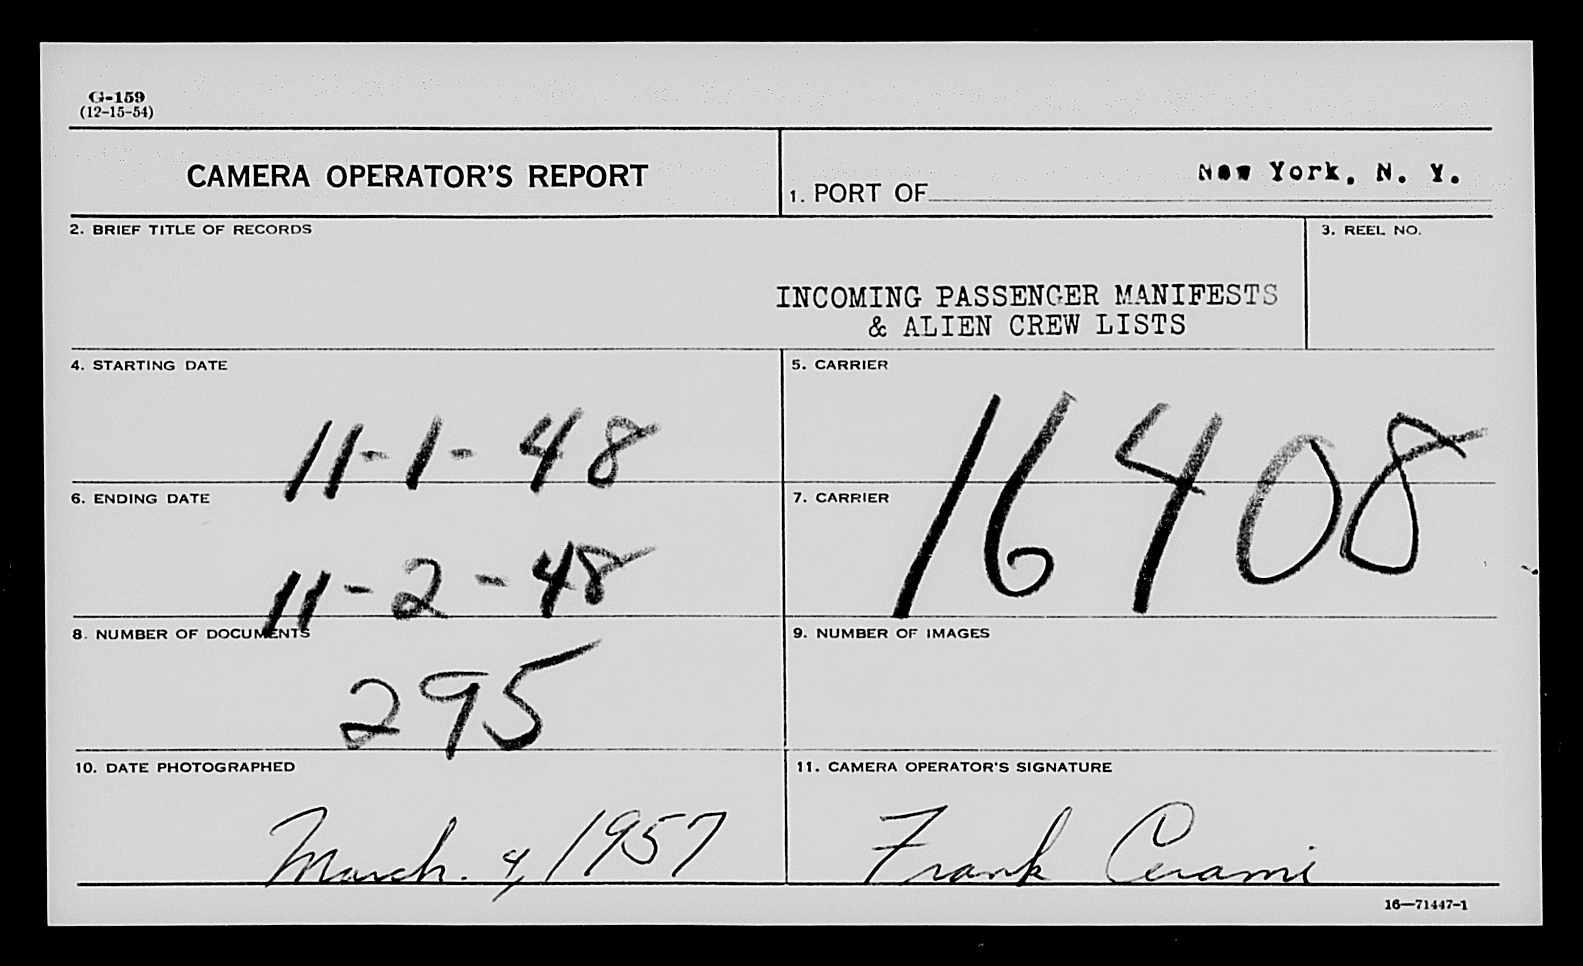 G-159
(12-15-54)
CAMERA OPERATOR'S REPORT
1. PORT OF New York, N. Y.
2. BRIEF TITLE OF RECORDS
INCOMING PASSENGER MANIFESTS
& ALIEN CREW LISTS
3. REEL NO.
4. STARTING DATE
11-1-48
5. CARRIER
16408
6. ENDING DATE
11-2-48
7. CARRIER
8. NUMBER OF DOCUMENTS
295
9. NUMBER OF IMAGES
10. DATE PHOTOGRAPHED
March. 4, 1957
11. CAMERA OPERATOR'S SIGNATURE
Frank Cerami
16—71447-1